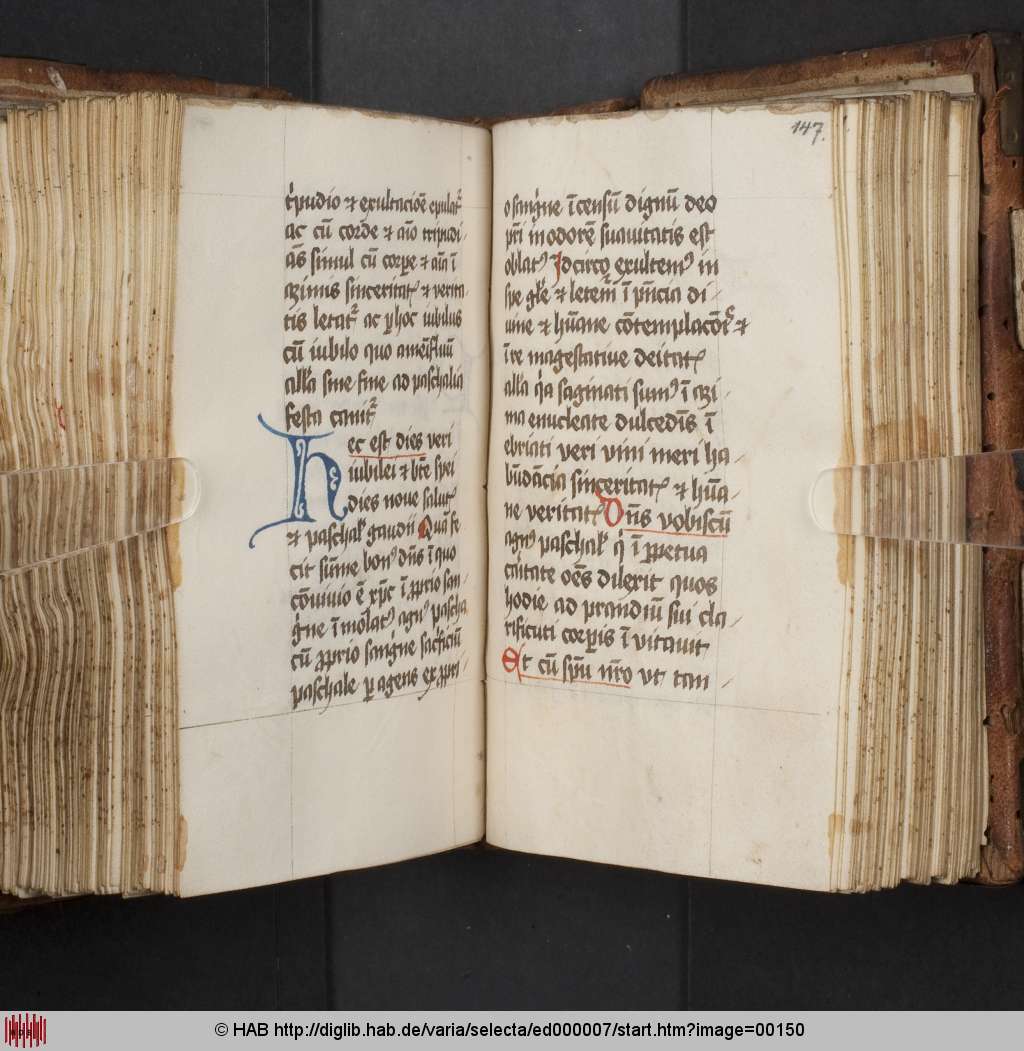 t'pudio et exultacōe epulat'
ac cū cord'e et aīo tripudi-
ās simul cū corꝑe et aīa ī
azimis sinceritat' et verita-
tis letat' ac ꝑ hoc iubilus
cū iubilo quo
all'a sine fine ad paschalia
festa canit'
Hec est dies veri
iubilei et bt̄e spei
dies noue salut'
et paschal' gaudii Quā fe-
cit sūme bon' dn̄s ī quo
cōuiuio ē xp̄c ī ꝓprio san-
g'ne īmolat' agn' pascha
cū ꝓprio sang'ne sac'ficiū
paschale ꝑ agens ex ꝓpri-
147.
o sang'ne īcensū dignū deo
pr̄i in odorē suauitatis est
oblat' Idcirco exultem' in
spe gl'e et letem' ī pn̄cia di-
uine et hūane cōtemplacōi' et
īre magestatiue deitat'
all'a q'a saginati sum' ī azi-
ma enucleate dulcedīs ī
ebriati veri vini meri ha-
būdācia sinceritat' et hūa-
ne veritat' Dn̄s vobiscū
agn' paschal' q' ī ꝑpetua
caritate oēs dilexit quos
hodie ad prandiū sui cla-
rificati corꝑis ī vitauit
Et cū sp̄u nr̄o vt tan-
© HAB http://diglib.hab.de/varia/selecta/ed000007/start.htm?image=00150